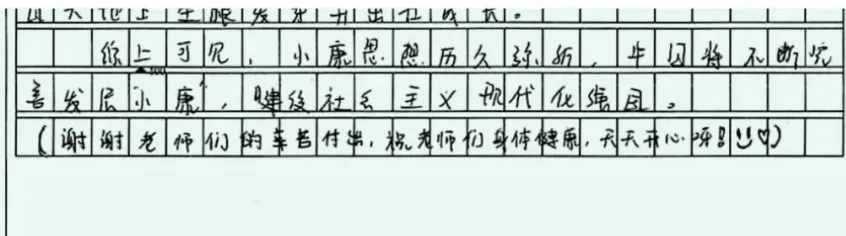 综上可见，小康思想历久弥新，中国将不断完
善发展“小康”，建设社会主义现代化强国。
（谢谢老师们的辛苦付出，祝老师们身体健康，天天开心呀！!!♡）